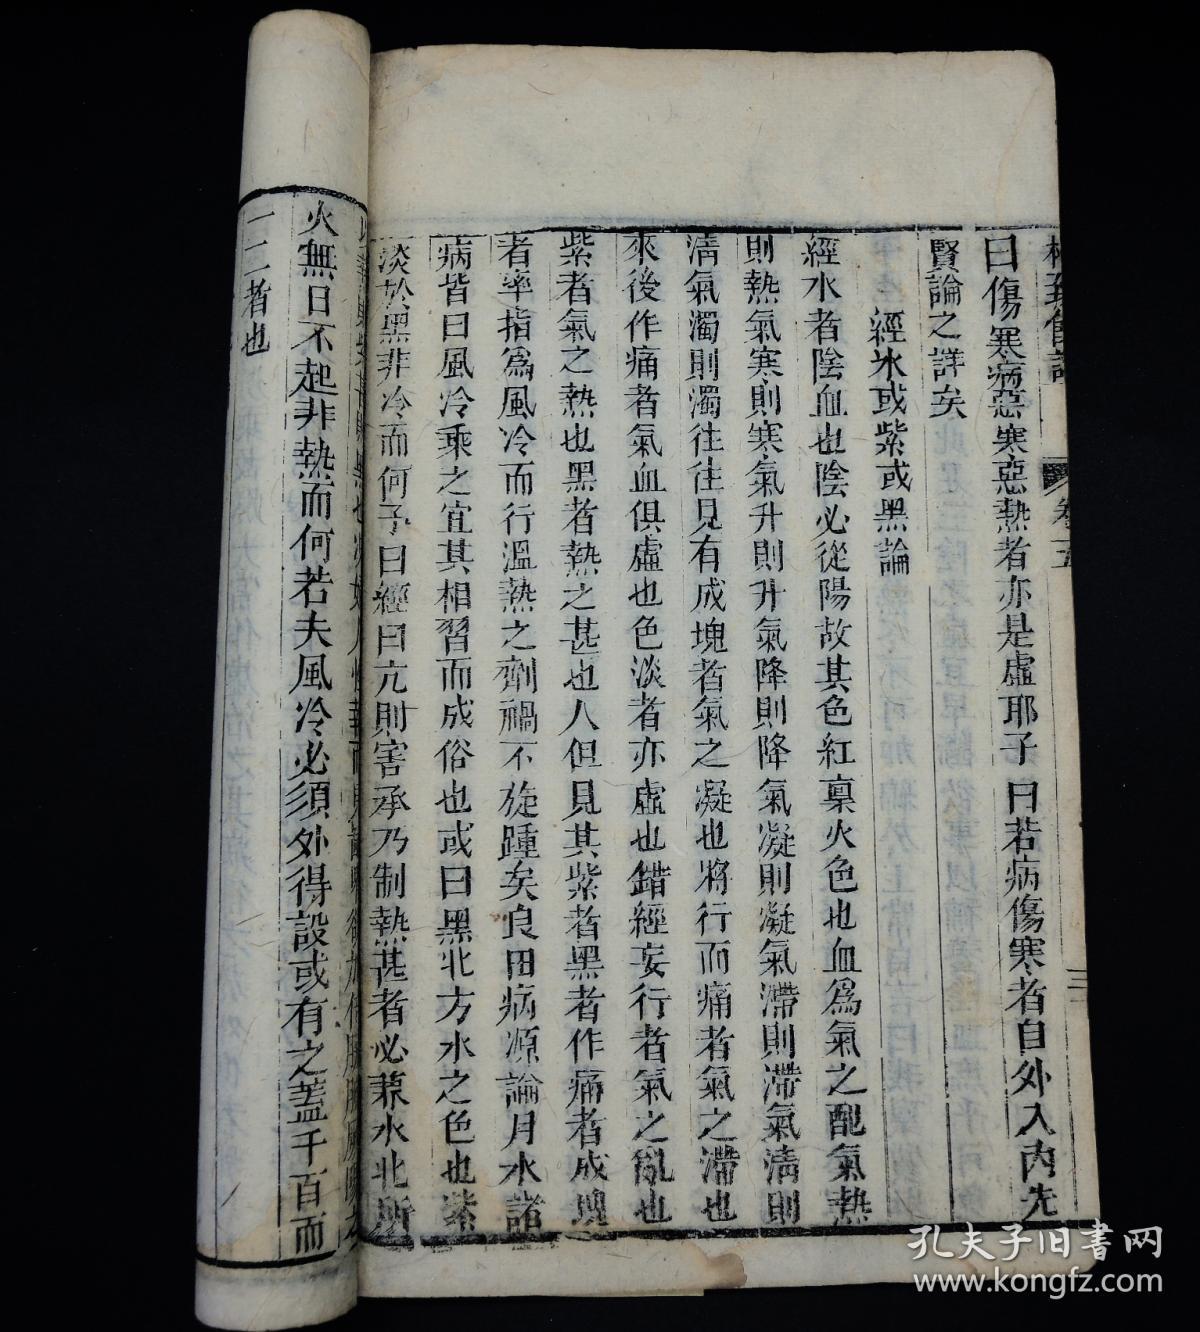 格致餘論
卷五
三
曰傷寒病惡寒惡熱者亦是虛耶予曰若病傷寒者自外入內先
賢論之詳矣
經水或紫或黑論
經水者陰血也陰必從陽故其色紅稟火色也血爲氣之配氣熱
則熱氣寒則寒氣升則升氣降則降氣凝則凝氣滯則滯氣清則
清氣濁則濁往往見有成塊者氣之凝也將行而痛者氣之滯也
來後作痛者氣血俱虛也色淡者亦虛也錯經妄行者氣之亂也
紫者氣之熱也黑者熱之甚也人但見其紫者黑者作痛者成塊
者率指爲風冷而行溫熱之劑禍不旋踵矣良田病源論月水諸
病皆曰風冷乘之宜其相習而成俗也或曰黑北方水之色也紫
淡於黑非冷而何予曰經曰亢則害承乃制熱甚者必兼水化所
火無日不起非熱而何若夫風冷必須外得設或有之蓋千百而
一二者也
孔夫子旧書网
www.kongfz.com